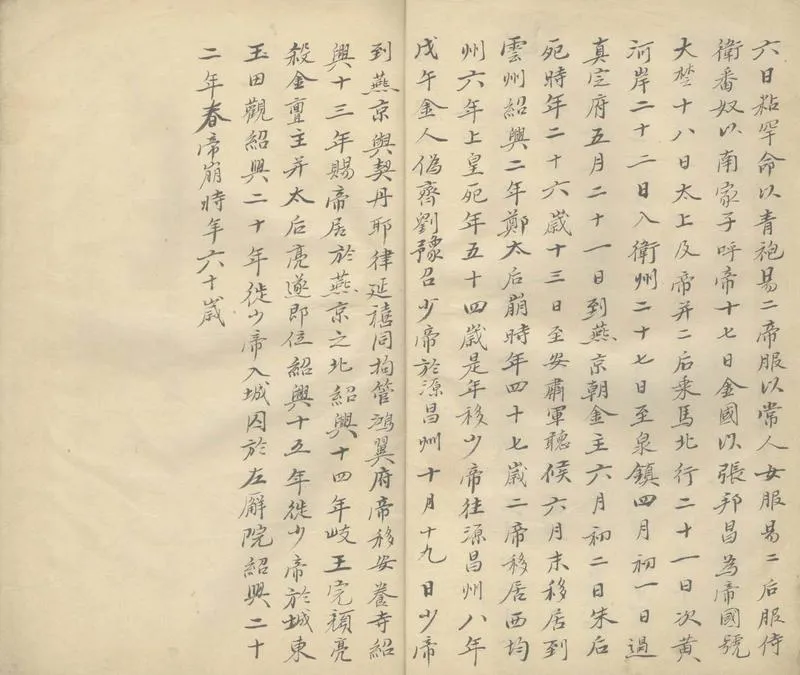 六日粘罕命以青袍易二帝服以常人女服易二后服侍
衛番奴以南家子呼帝十七日金國以張邦昌為帝國號
大楚十八日太上及帝并二后乘馬北行二十一日次黃
河岸二十二日入衛州二十七日至泉鎮四月初一日過
真定府五月二十一日到燕京朝金主六月初二日朱后
死時年二十六歲十三日至安肅軍聽候六月末移居到
雲州紹興二年鄭太后崩時年四十七歲二帝移居西均
州六年上皇死年五十四歲是年移少帝往源昌州八年
戊午金人偽齊劉豫召少帝於源昌州十月十九日少帝
到燕京與契丹耶律延禧同拘管鴻翼府帝移安養寺紹
興十三年賜帝居於燕京之北紹興十四年岐王完顏亮
殺金亶主并太后亮遂即位紹興十五年徙少帝於城東
玉田觀紹興二十年徙少帝入城囚於左廨院紹興二十
二年春帝崩時年六十歲